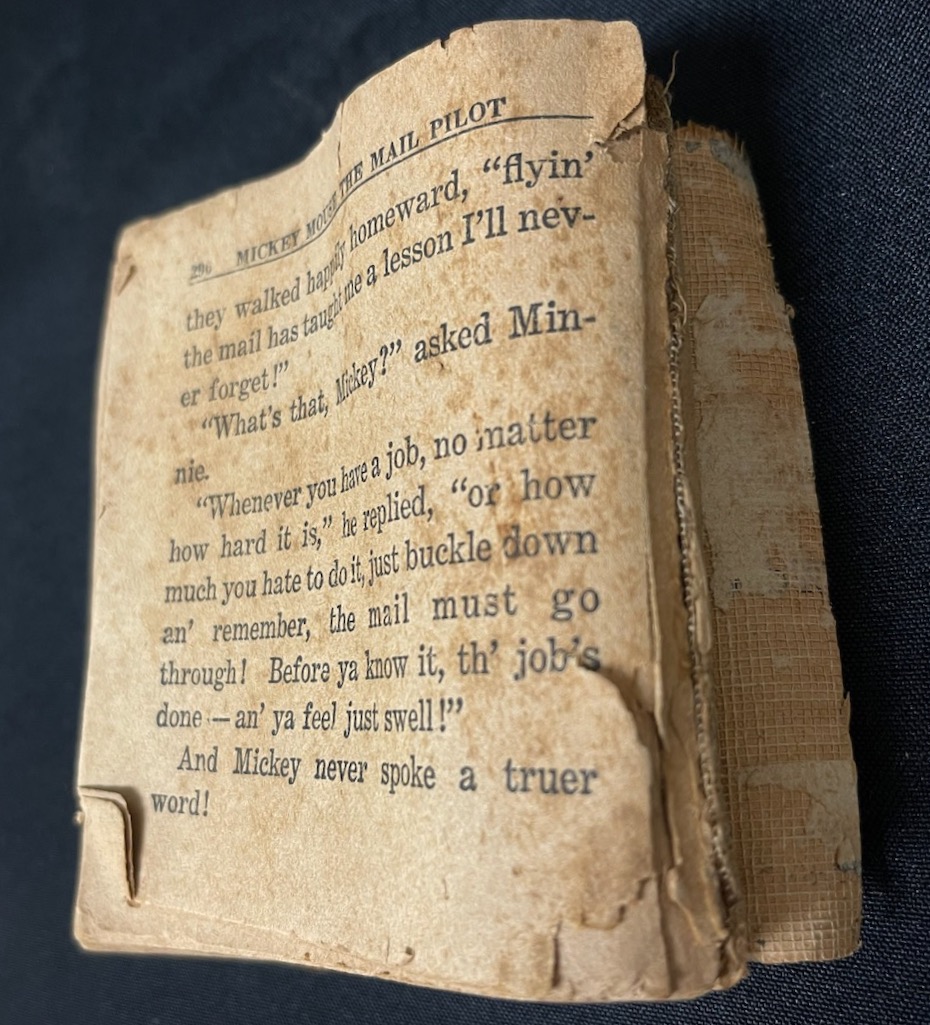 296 MICKEY MOUSE THE MAIL PILOT
they walked happily homeward, “flyin’
the mail has taught me a lesson I’ll nev-
er forget!”
“What’s that, Mickey?” asked Min-
nie.
“Whenever you have a job, no matter
how hard it is,” he replied, “or how
much you hate to do it, just buckle down
an’ remember, the mail must go
through! Before ya know it, th’ job’s
done — an’ ya feel just swell!”
And Mickey never spoke a truer
word!